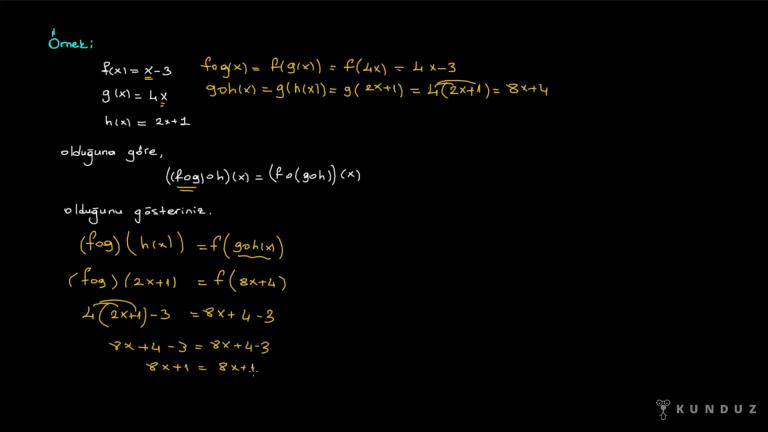 Örnek:
f(x) = x-3 fog(x) = f(g(x)) = f(4x) = 4x-3
g(x) = 4x goh(x) = g(h(x)) = g(2x+1) = 4(2x+1) = 8x+4
h(x) = 2x+1
olduğuna göre,
((fog)oh)(x) = (fo(goh))(x)
olduğunu gösteriniz.
(fog)(h(x)) = f(goh(x))
(fog)(2x+1) = f(8x+4)
4(2x+1)-3 = 8x+4-3
8x+4-3 = 8x+4-3
8x+1 = 8x+1
KUNDUZ